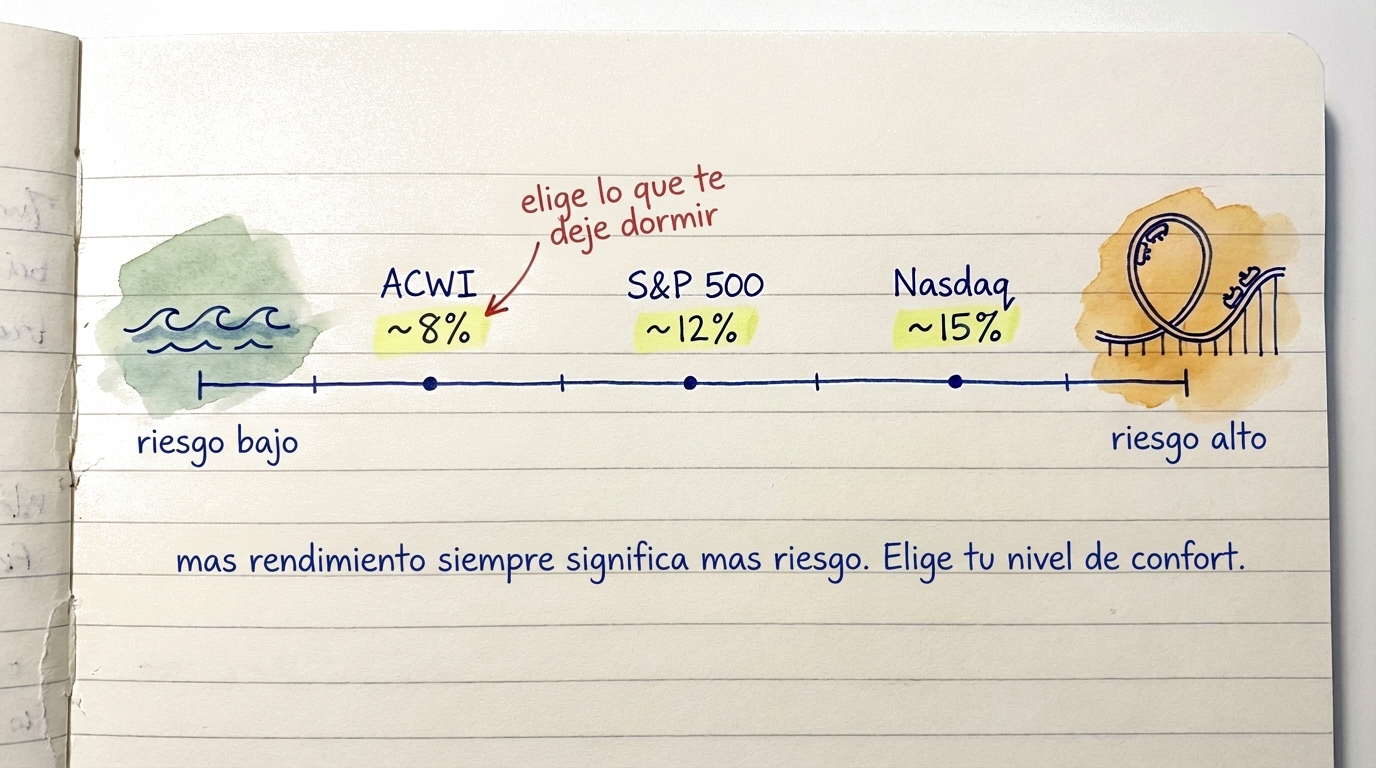 elige lo que te
deje dormir
ACWI
~8%
S&P 500
~12%
Nasdaq
~15%
riesgo bajo
riesgo alto
mas rendimiento siempre significa mas riesgo. Elige tu nivel de confort.